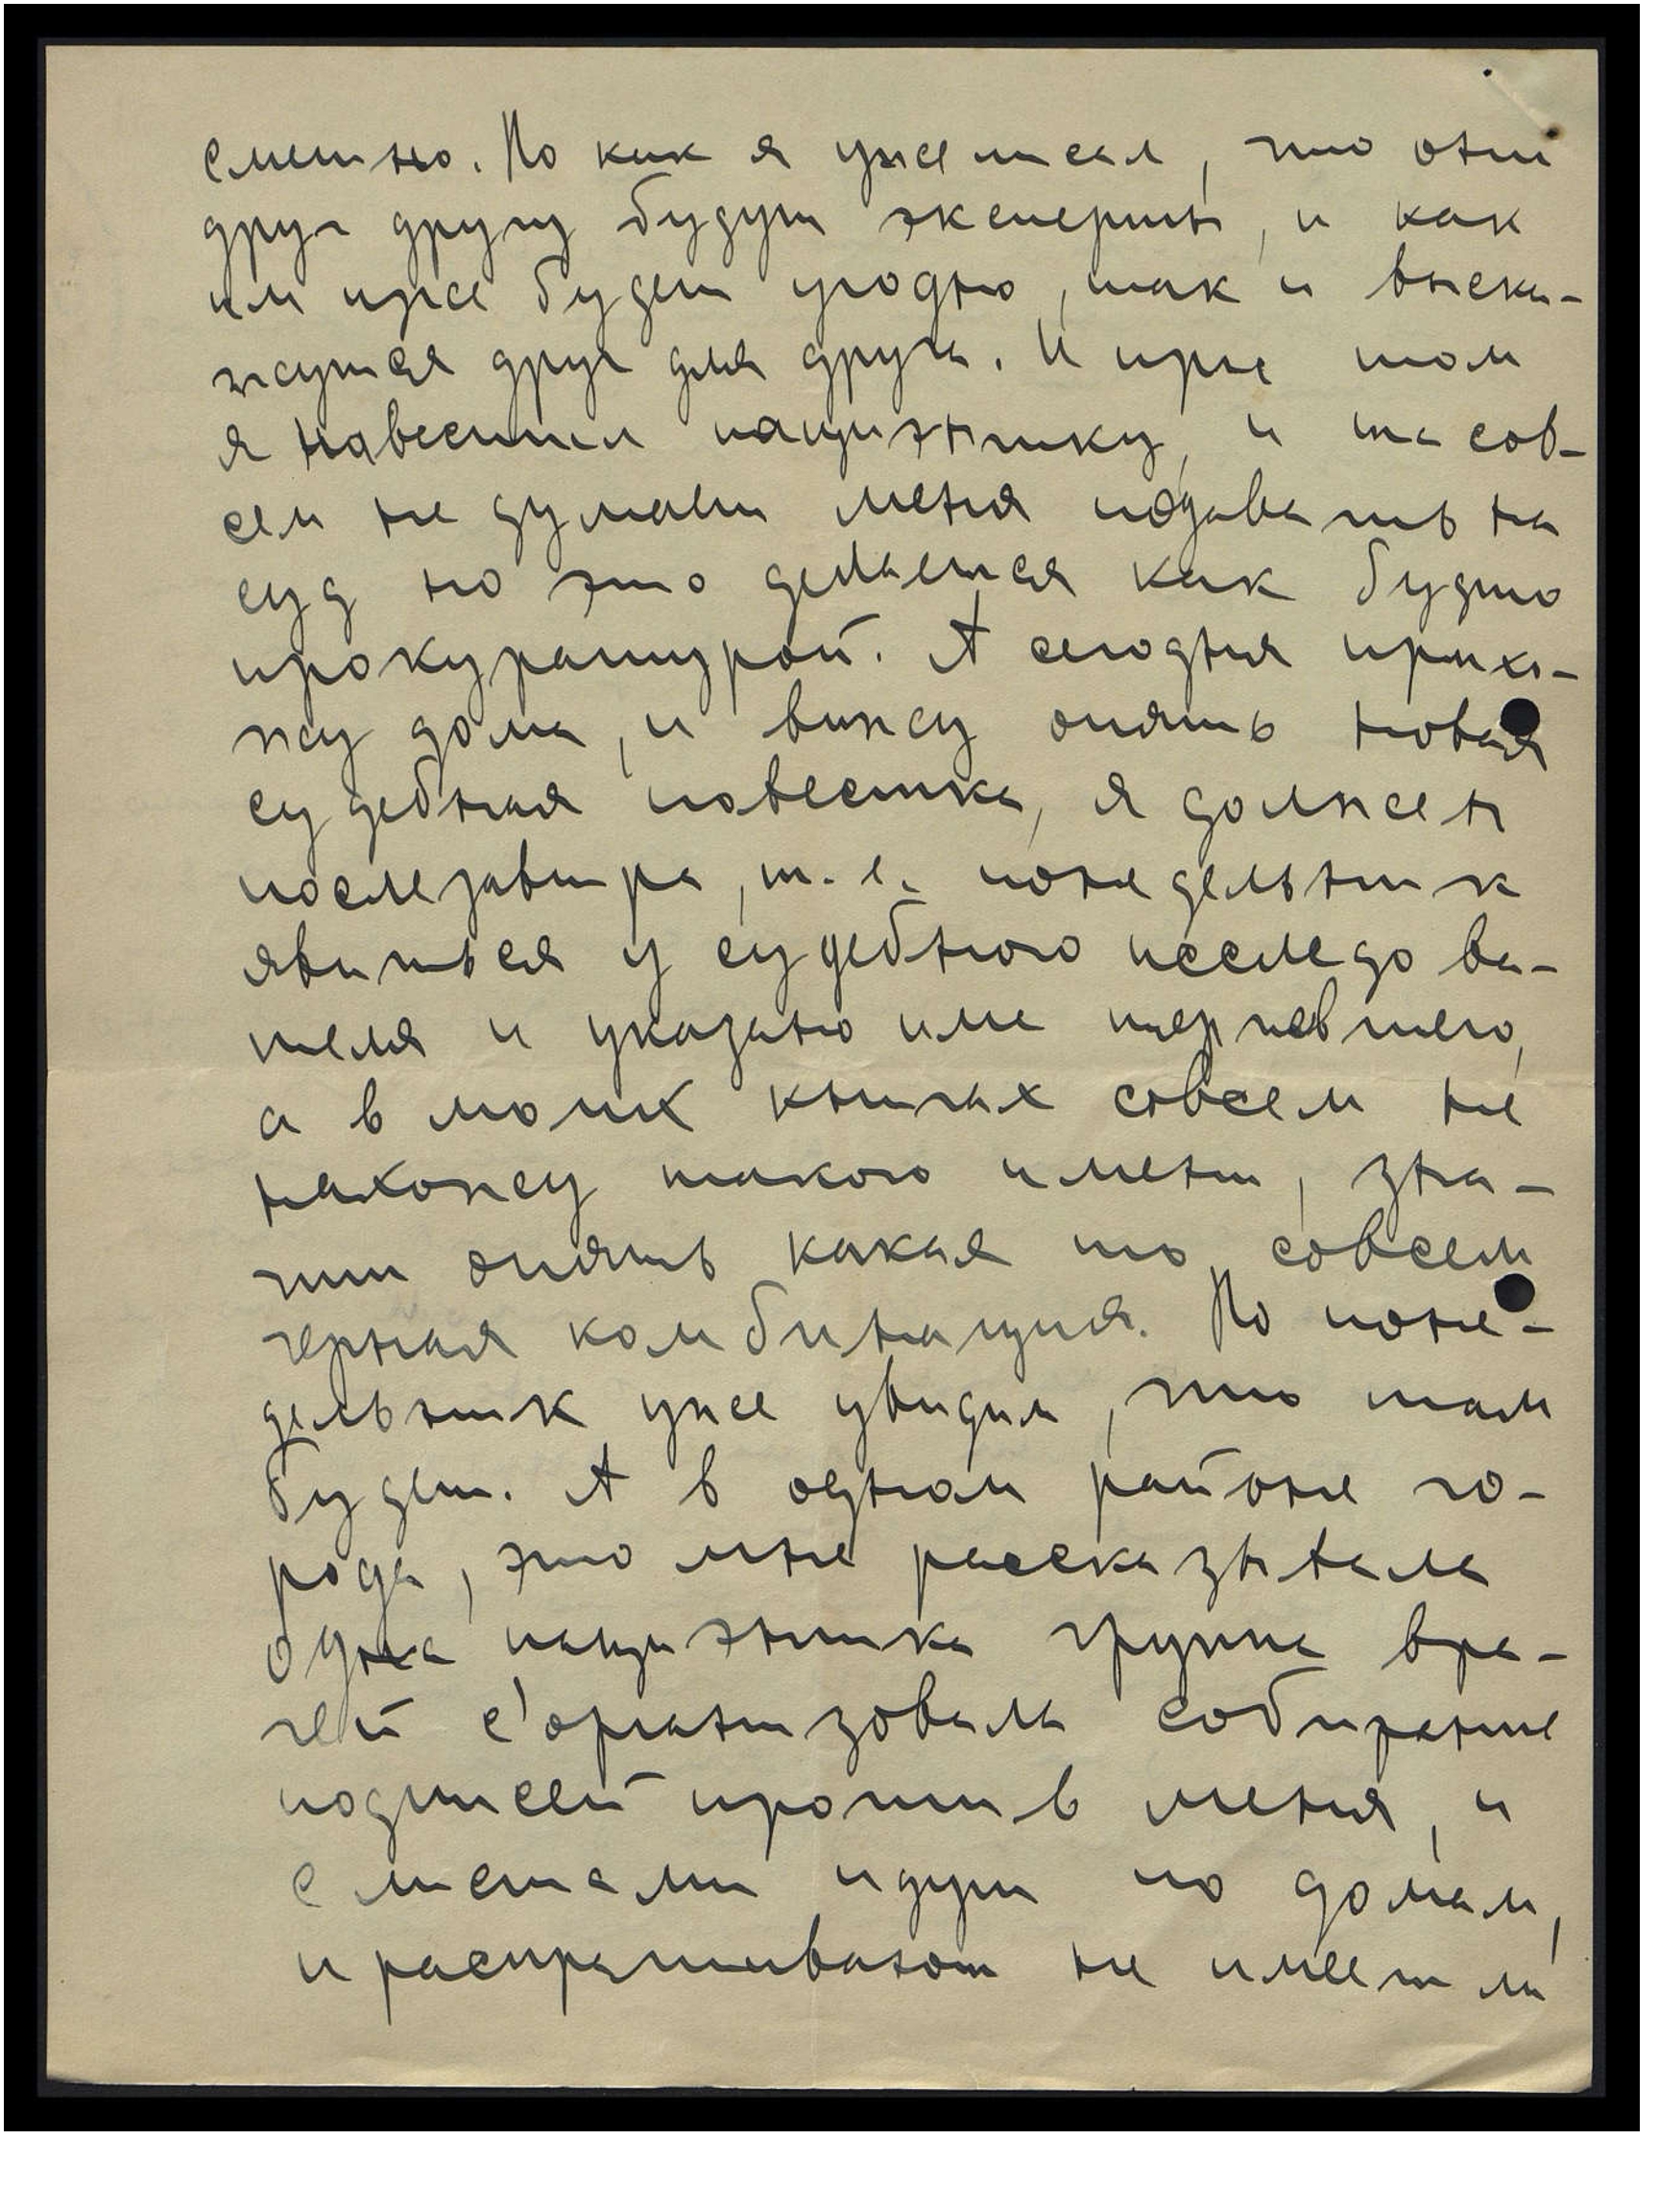 смешно. Но как я уже писал, что они
друг другу будут эксперты, и как
им уже будет угодно, так и выска-
жутся друг для друга. И при том
я навестил пациэнтку, и та сов-
сем не думает меня подавать на
суд но это делается как будто
прокуратурой. А сегодня прихо-
жу дома, и вижу опять новая
судебная повестка, я должен
послезавтра, т. е. понедельник
явиться у судебного исследова-
теля и указано имя терпевшего,
а в моих книгах совсем не
нахожу такого имени, зна-
чит опять какая то совсем
черная комбинация. Но поне-
дельник уже увидим, что там
будет. А в одном районе го-
рода, это мне рассказывала
одна пациэнтка группа вра-
чей с'организовала собирание
подписей против меня, и
с листами идут по домам,
и распрашивают не имеет ли